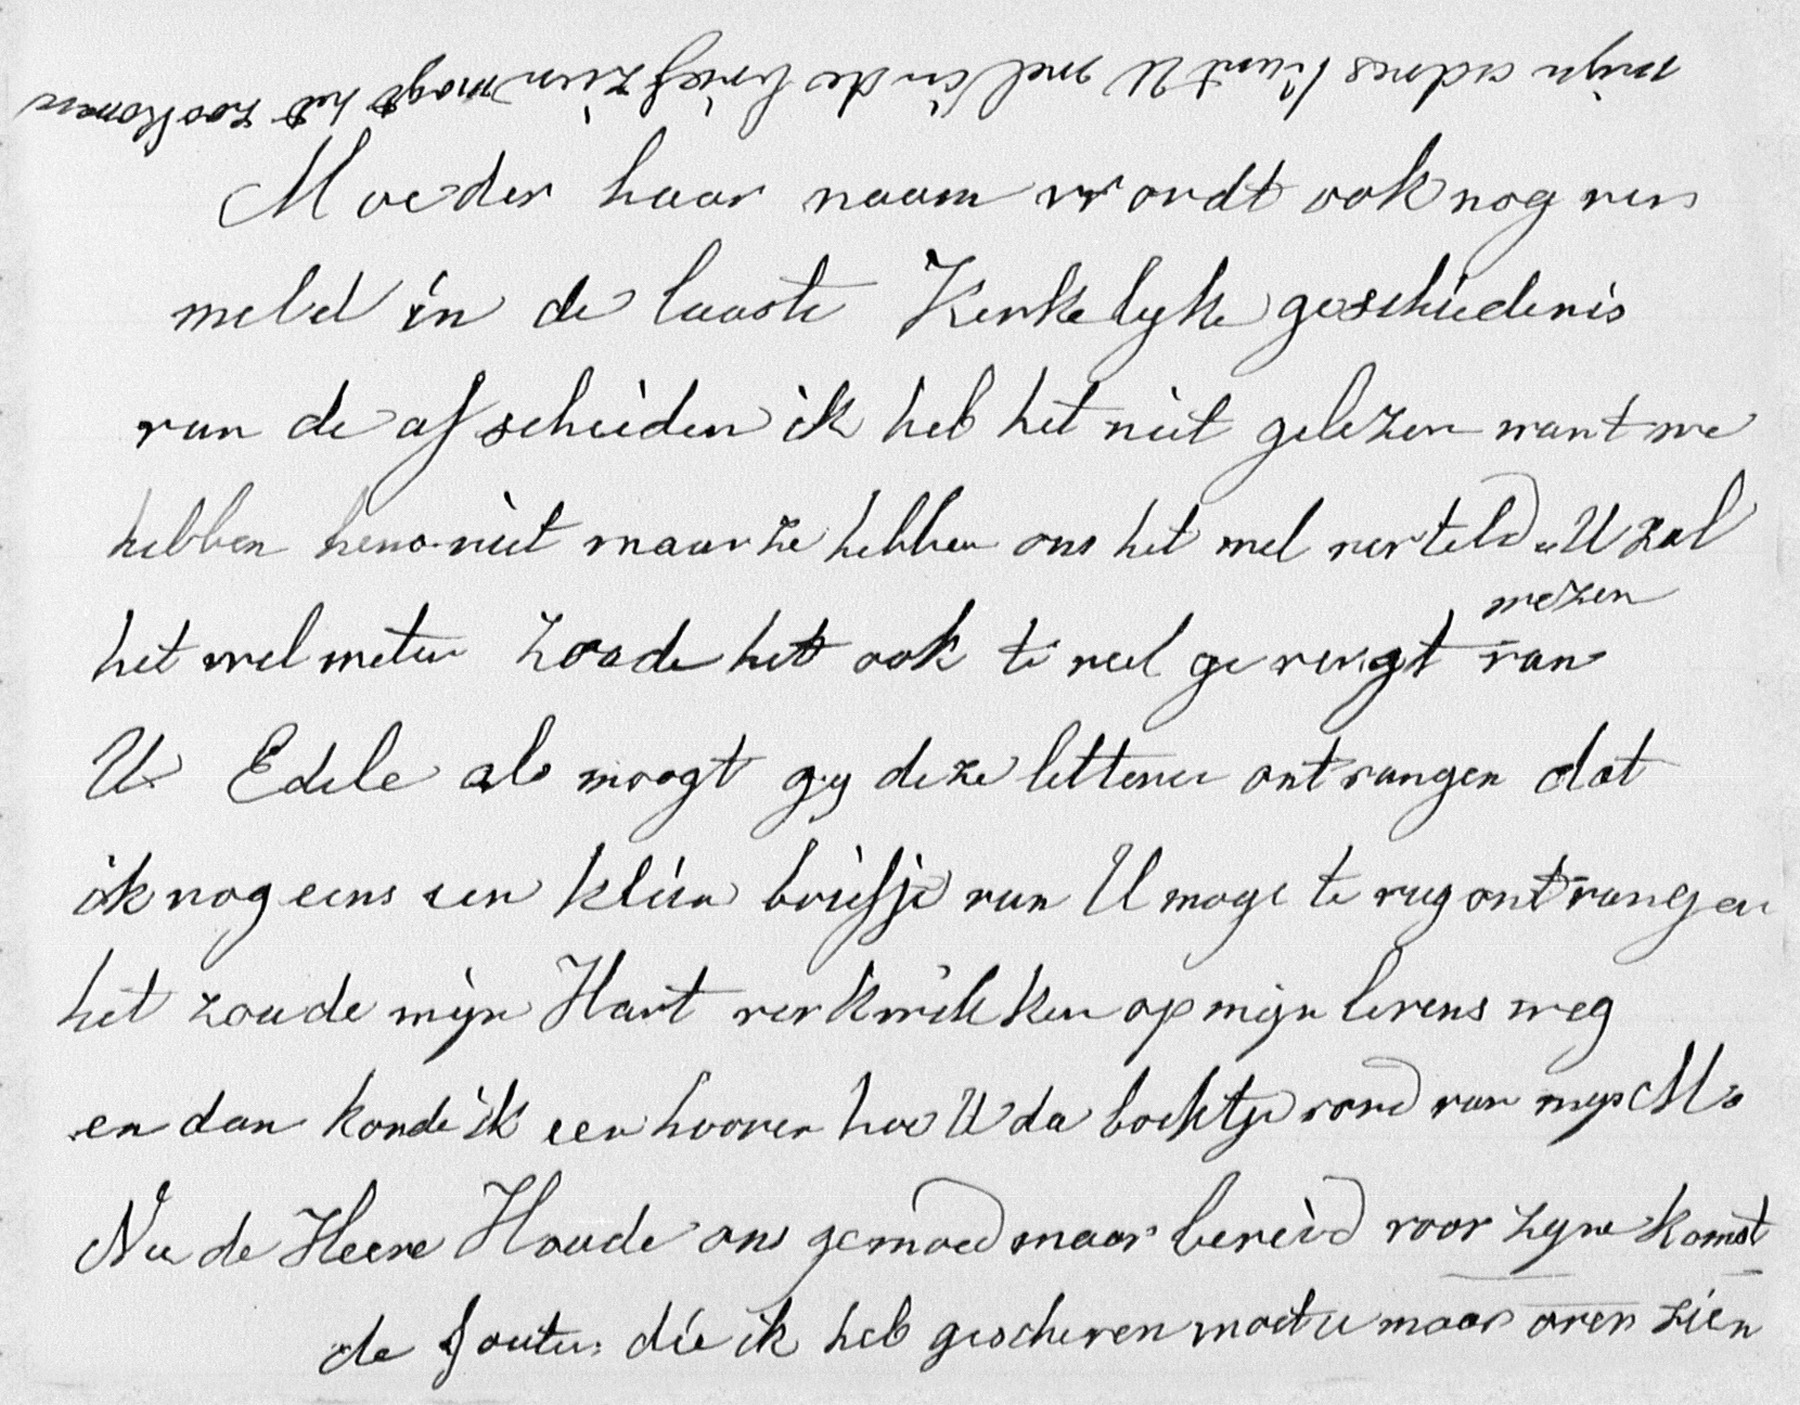 mijn adres kunt U wel in de brief zien mogt het zoo komen
Moeder haar naam wordt ook nog ver
meld in de laaste Kerkelyke geschiedenis
van de afscheiden ik heb het niet gelezen want we
hebben heno niet maar ze hebben ons het wel verteld U zal
wezen
het wel weten zoude het ook te veel gevergt van
U Edele als moogt gy deze letteren ontvangen dat
ik nog eens een klein briefje van U moge te rug ontvangen
het zoude mijn Hart verkwikken op mijn levens weg
en dan konde ik een hooren hoe U da boektje vond van myn M
Nu de Heere Houde ons gemoed maar bereid voor zyne komst
de fouten die ik heb gescheven moet u maar over zien